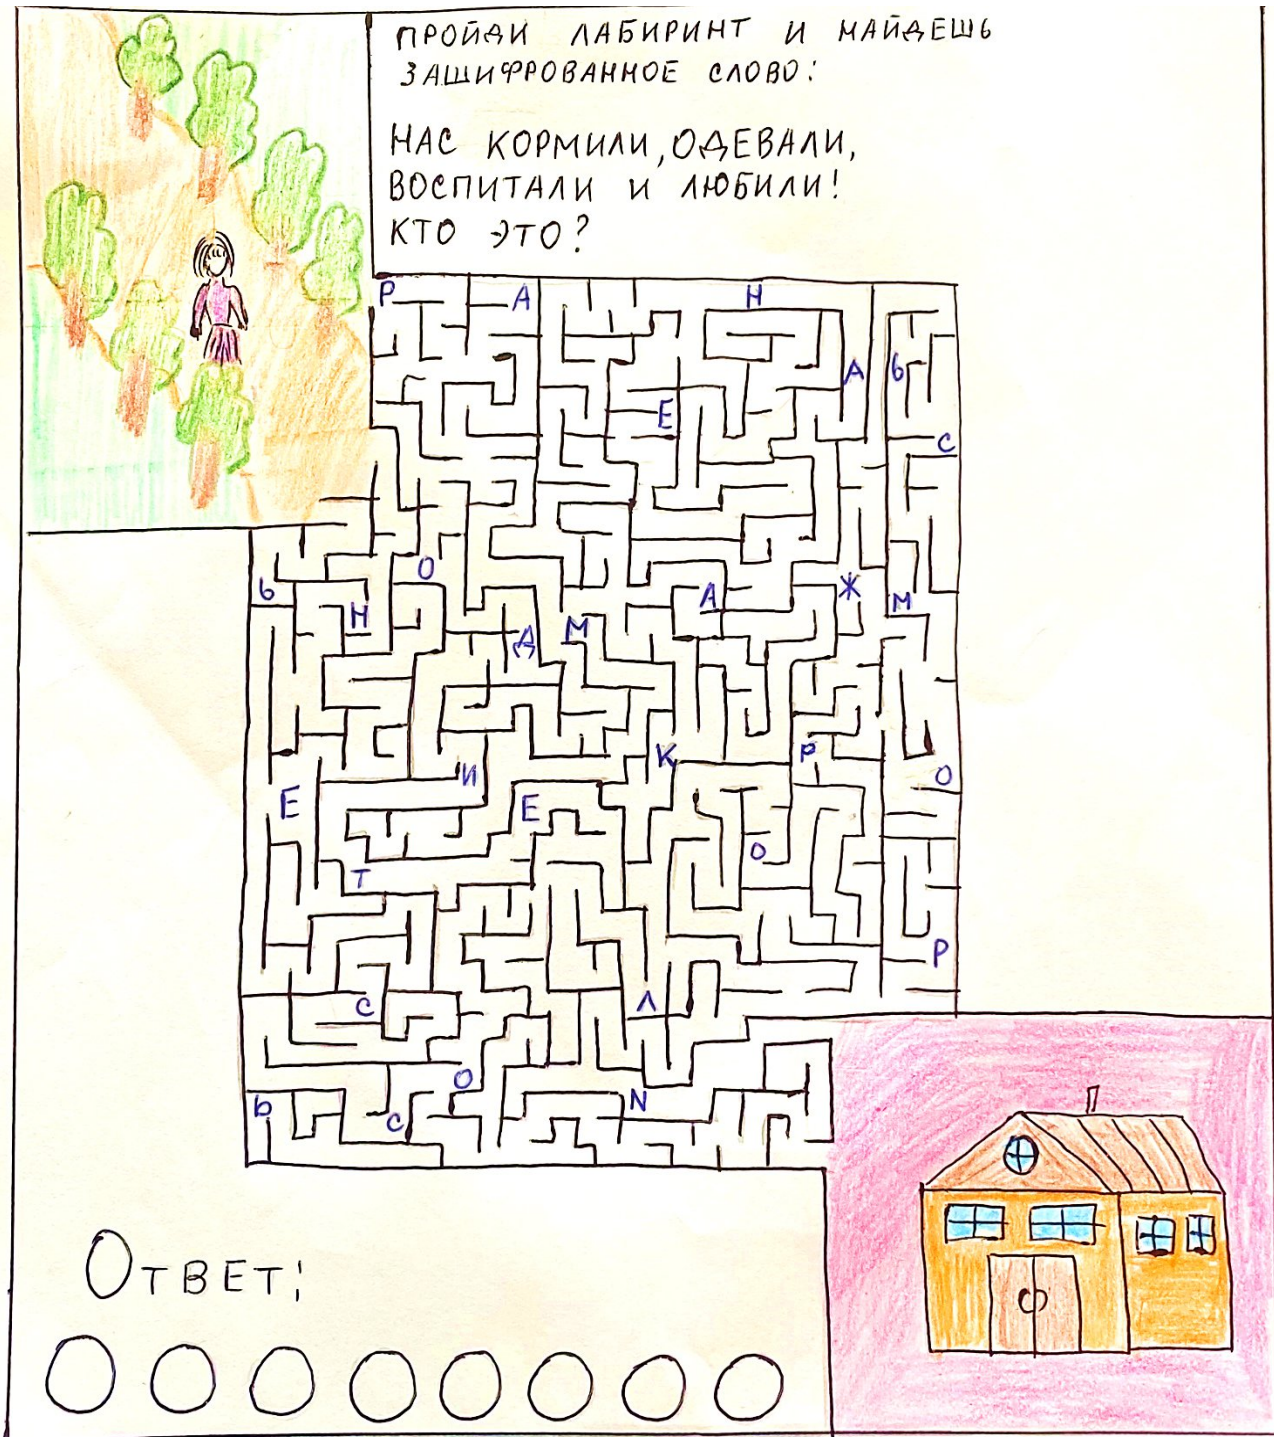 ПРОЙДИ ЛАБИРИНТ И НАЙДЕШЬ
ЗАШИФРОВАННОЕ СЛОВО:
НАС КОРМИЛИ, ОДЕВАЛИ,
ВОСПИТАЛИ И ЛЮБИЛИ!
КТО ЭТО?
Р А Н
А Ь
Е
С
О
Ь А Ж М
Н Д М
К Р
И О
Е Е
О
Т
Р
С Л
О
Ь С N
ОТВЕТ: